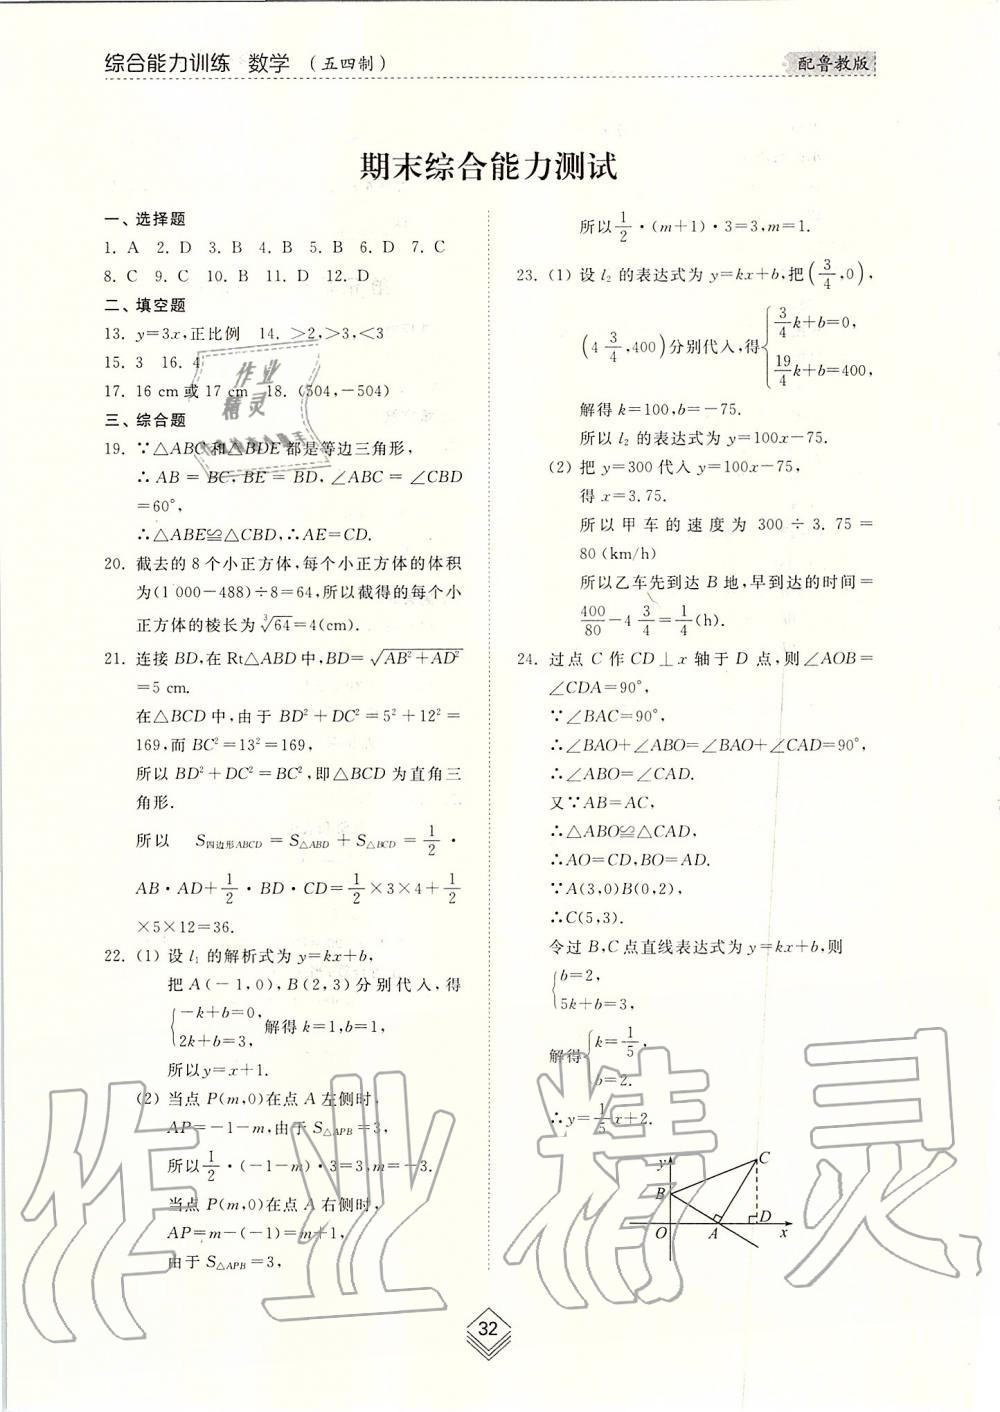 综合能力训练 数学 (五四制)
配鲁教版
期末综合能力测试
一、选择题
1. A 2. D 3. B 4. B 5. B 6. D 7. C
8. C 9. C 10. B 11. D 12. D
二、填空题
13. y=3x,正比例 14. >2,>3,<3
15. 3 16. 4
17. 16 cm或17 cm 18. (504,-504)
三、综合题
19. ∵△ABC和△BDE都是等边三角形,
∴AB=BC,BE=BD,∠ABC=∠CBD
=60°,
∴△ABE≌△CBD,∴AE=CD.
20. 截去的8个小正方体,每个小正方体的体积
为(1 000-488)÷8=64,所以截得的每个小
正方体的棱长为∛64=4(cm).
21. 连接BD,在Rt△ABD中,BD=√(AB²+AD²)
=5 cm.
在△BCD中,由于BD²+DC²=5²+12²=
169,而BC²=13²=169,
所以BD²+DC²=BC²,即△BCD为直角三
角形.
所以 S四边形ABCD=S△ABD+S△BCD=1/2·
AB·AD+1/2·BD·CD=1/2×3×4+1/2
×5×12=36.
22. (1) 设l₁的解析式为y=kx+b,
把A(-1,0),B(2,3)分别代入,得
{-k+b=0,
2k+b=3, 解得k=1,b=1,
所以y=x+1.
(2) 当点P(m,0)在点A左侧时,
AP=-1-m,由于S△APB=3,
所以1/2·(-1-m)·3=3,m=-3.
当点P(m,0)在点A右侧时,
AP=m-(-1)=m+1,
由于S△APB=3,
所以1/2·(m+1)·3=3,m=1.
23. (1) 设l₂的表达式为y=kx+b,把(3/4,0),
(4 3/4,400)分别代入,得{3/4k+b=0,
19/4k+b=400,
解得k=100,b=-75.
所以l₂的表达式为y=100x-75.
(2) 把y=300代入y=100x-75,
得x=3.75.
所以甲车的速度为300÷3.75=
80(km/h)
所以乙车先到达B地,早到达的时间=
400/80-4 3/4=1/4(h).
24. 过点C作CD⊥x轴于D点,则∠AOB=
∠CDA=90°,
∵∠BAC=90°,
∴∠BAO+∠ABO=∠BAO+∠CAD=90°,
∴∠ABO=∠CAD.
又∵AB=AC,
∴△ABO≌△CAD,
∴AO=CD,BO=AD.
∵A(3,0)B(0,2),
∴C(5,3).
令过B,C点直线表达式为y=kx+b,则
{b=2,
5k+b=3,
解得{k=1/5,
b=2.
∴y=1/5x+2.
y
C
B
O
A
D
x
32
作业精灵
作业
精灵